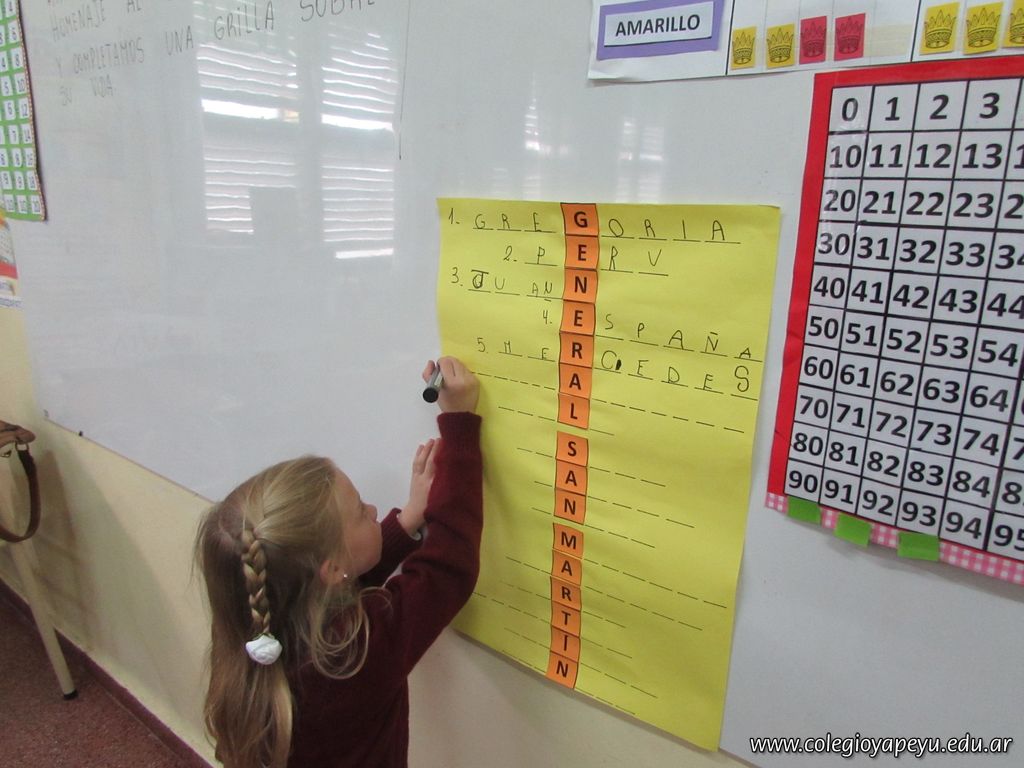 HOMENAJE AL
Y COMPLETAMOS UNA GRILLA SOBRE
SU VIDA
AMARILLO
1. GREGORIA
2. PERU
3. JUAN N
4. ESPAÑA
5. MERCEDES
A
L
S
A
N
M
A
R
T
Í
N
0 1 2 3
10 11 12 13 1
20 21 22 23 2
30 31 32 33 34
40 41 42 43 44
50 51 52 53 54
60 61 62 63 64
70 71 72 73 74
80 81 82 83 84 8
90 91 92 93 94 95
www.colegioyapeyu.edu.ar